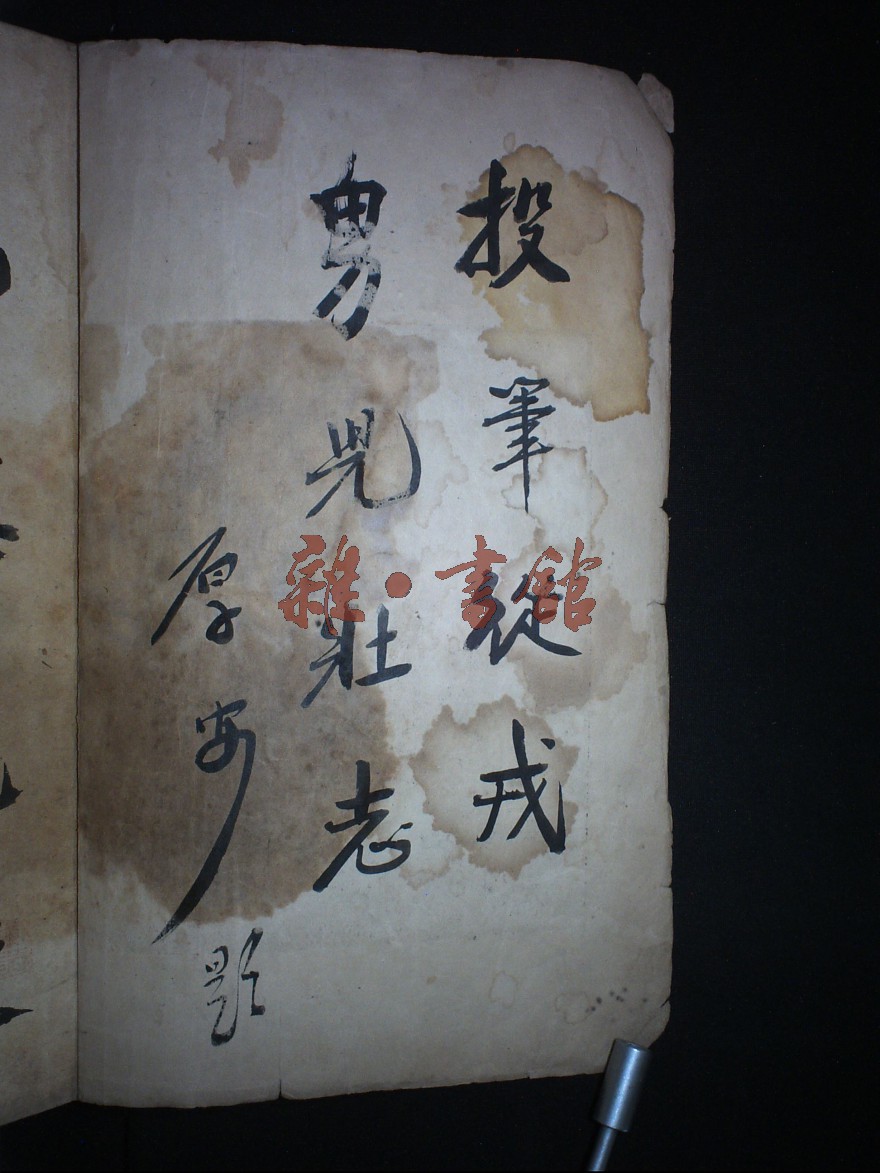 投筆從戎
男兒壯志
厚安題
雜·書館